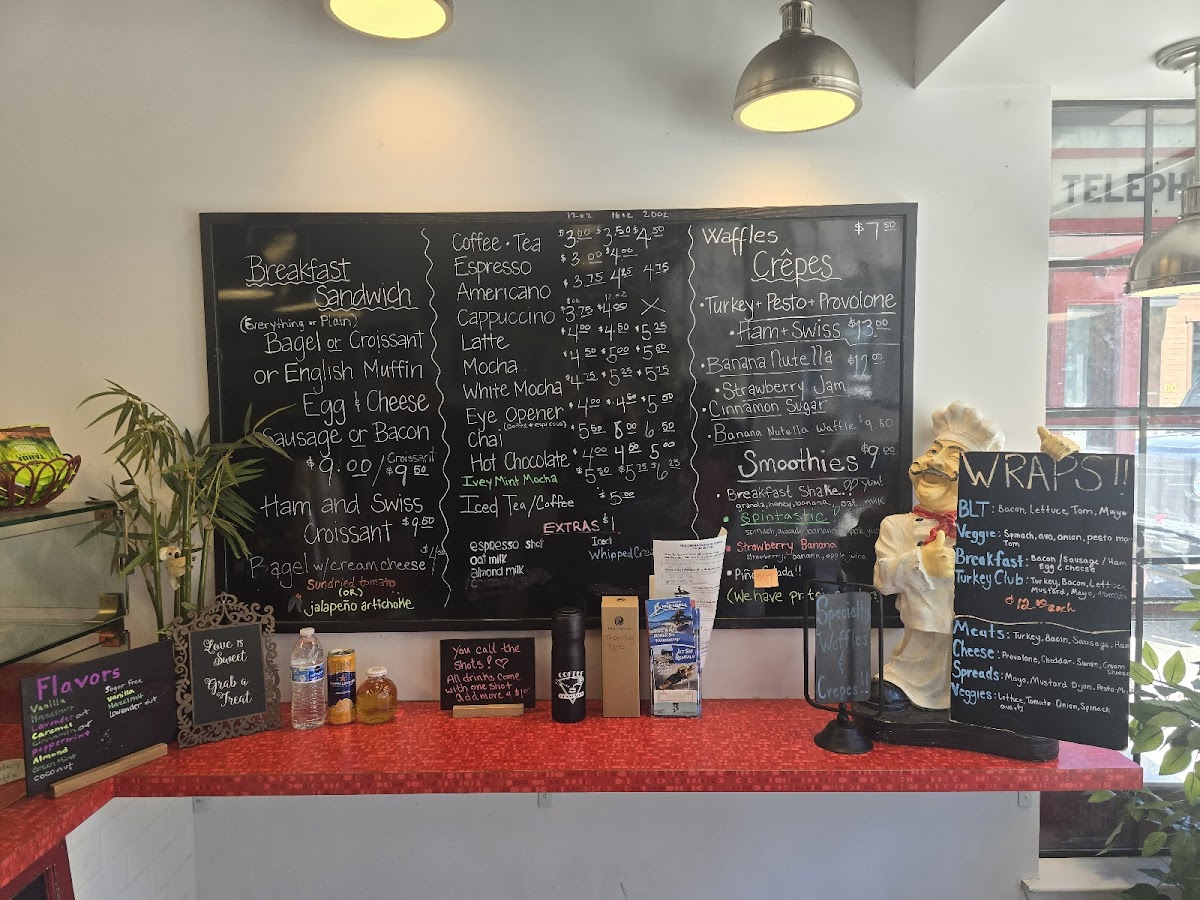 TELEPH
Breakfast
Sandwich
(Everything or Plain)
Bagel or Croissant
or English Muffin
Egg & Cheese
Sausage or Bacon
$9.00 / Croissant $9.50
Ham and Swiss
Croissant $9.50
Bagel w/cream cheese
Sundried tomato
(OR)
jalapeño artichoke
12oz 16oz 20oz
Coffee · Tea $3.00 $3.50 $4.50
Espresso $3.00 $4.00
Americano $3.75 4.25 4.75
8oz 12oz
Cappuccino $3.75 $4.00 X
Latte $4.00 $4.50 $5.25
Mocha $4.50 $5.00 $5.50
White Mocha $4.75 $5.25 $5.75
Eye Opener $4.00 $4.50 $5.50
(Coffee + espresso)
Chai $5.50 6.00 6.50
Hot Chocolate $4.00 4.50 5.00
Ivey Mint Mocha $5.50 $5.75 $6.25
Iced Tea/Coffee $5.00
EXTRAS $1
espresso shot
oat milk
almond milk
Iced
Whipped Cre
Waffles $7.50
Crêpes
• Turkey + Pesto + Provolone
• Ham + Swiss $13.00
• Banana Nutella $12.00
• Strawberry Jam
• Cinnamon Sugar
• Banana Nutella Waffle $9.50
Smoothies $9.00
• Breakfast Shake!! Yum!
granola, honey, banana, oat milk
Spintastic
• Strawberry Banana
strawberry, banana, apple juice
• Piña Colada!!
(We have pr
WRAPS!!
BLT: Bacon, Lettuce, Tom, Mayo
Veggie: Spinach, avo, onion, pesto
Tom
Breakfast: Bacon/Sausage/Ham
Egg & cheese
Turkey Club: Turkey, Bacon, Lettuce
Mustard, Mayo, tomato
$12.00 each
Meats: Turkey, Bacon, Sausage, Ham
Cheese: Provolone, Cheddar, Swiss, Cream
Cheese
Spreads: Mayo, Mustard Dijon, Pesto
Veggies: Lettuce, Tomato Onion, Spinach
Specialty
Waffles
&
Crepes!!
You call the
Shots!
All drinks come
with one shot
add more 4 $1
COFFEE
Love is
Sweet
Grab a
Treat
Flavors
Vanilla
Hazelnut
Lavender
Caramel
Cinnamon
Peppermint
Almond
Green Mint
coconut
Sugar Free
Vanilla
Hazelnut
Lavender